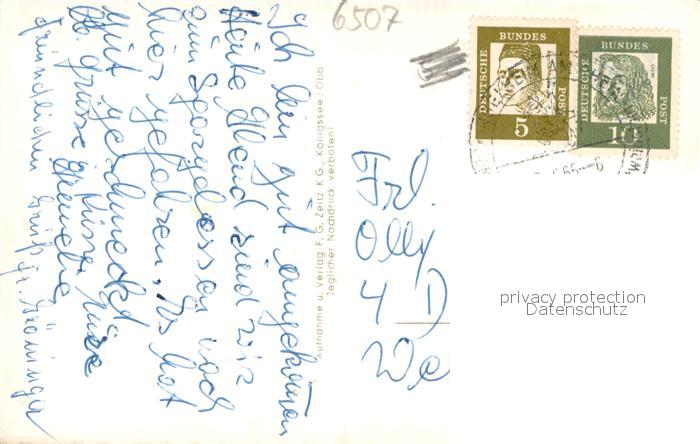 6507
DEUTSCHE BUNDES POST
5
DEUTSCHE BUNDES POST
10
Dürer
Ich bin gut angekommen
Heute Abend sind wir
zum Spargelessen nach
hier gefahren. Es hat
gut geschmeckt
Lb. Grüsse Küsse
Aufnahme u. Verlag F. G. Zeitz K G., Königssee/Obb
Jeglicher Nachdruck verboten!
Frl.
Olly
4 D
We
privacy protection
Datenschutz